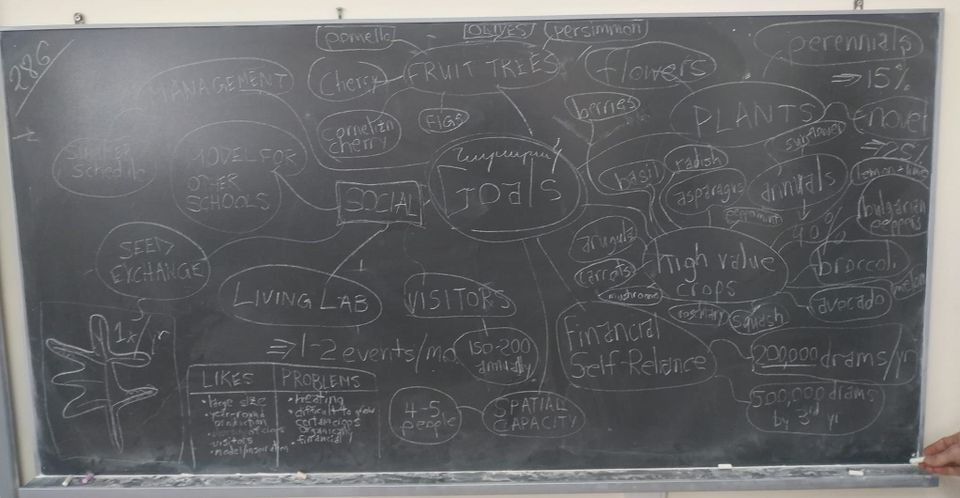 286
MANAGEMENT
SUMMER
schedule
MODEL FOR
OTHER
SCHOOLS
SEED
EXCHANGE
1x/yr
pomello
OLIVES
persimmon
Cherry
FRUIT TREES
cornelian
cherry
FIGS
SOCIAL
Goals
flowers
berries
PLANTS
perennials
⇒ 15%
novel
⇒ 25%
sunflower
annuals
↓
40%
lemon-lime
bulgarian
peppers
basil
radish
asparagus
peppermint
arugula
carrots
mushrooms
high value
crops
rosemary
squash
broccoli
avocado
melon
LIVING LAB
⇒ 1-2 events/mo
VISITORS
150-200
annually
SPATIAL
CAPACITY
4-5
people
Financial
Self-Reliance
200,000 drams/yr
500,000 drams
by 3rd yr
LIKES
• large size
• year-round
production
visitors
• model/inspiration
PROBLEMS
• heating
• difficult to grow
certain crops
organically
• financial